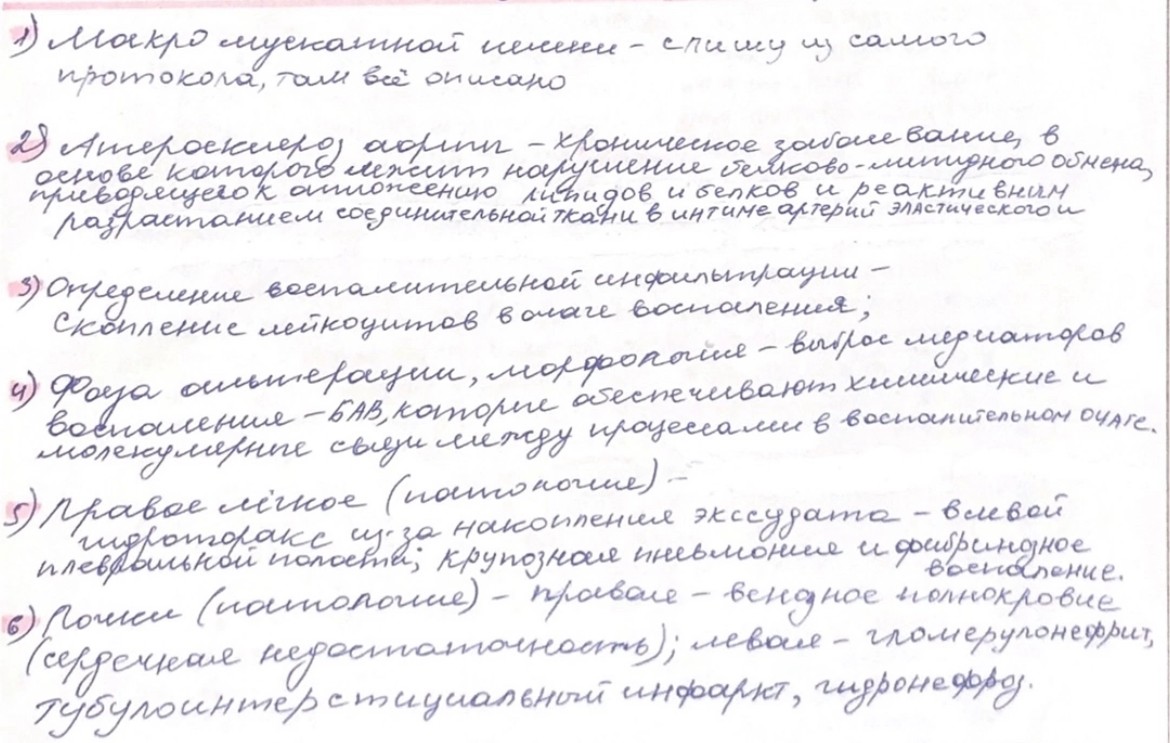 1) Макро мускатной печени - спишу из самого
протокола, там всё описано
2) Атеросклероз аорты - хроническое заболевание, в
основе которого лежит нарушение белково-липидного обмена,
приводящего к отложению липидов и белков и реактивным
разрастанием соединительной ткани в интиме артерий эластического и
3) Определение воспалительной инфильтрации -
Скопление лейкоцитов в очаге воспаления;
4) Фаза альтерации, морфология - выброс медиаторов
воспаления - БАВ, которые обеспечивают химические и
молекулярные связи между процессами в воспалительном очаге.
5) Правое лёгкое (патология) -
гидроторакс из-за накопления экссудата - в левой
плевральной полости; крупозная пневмония и фибринозное
воспаление.
6) Почки (патология) - правая - венозное полнокровие
(сердечная недостаточность); левая - гломерулонефрит,
тубулоинтерстициальный инфаркт, гидронефроз.